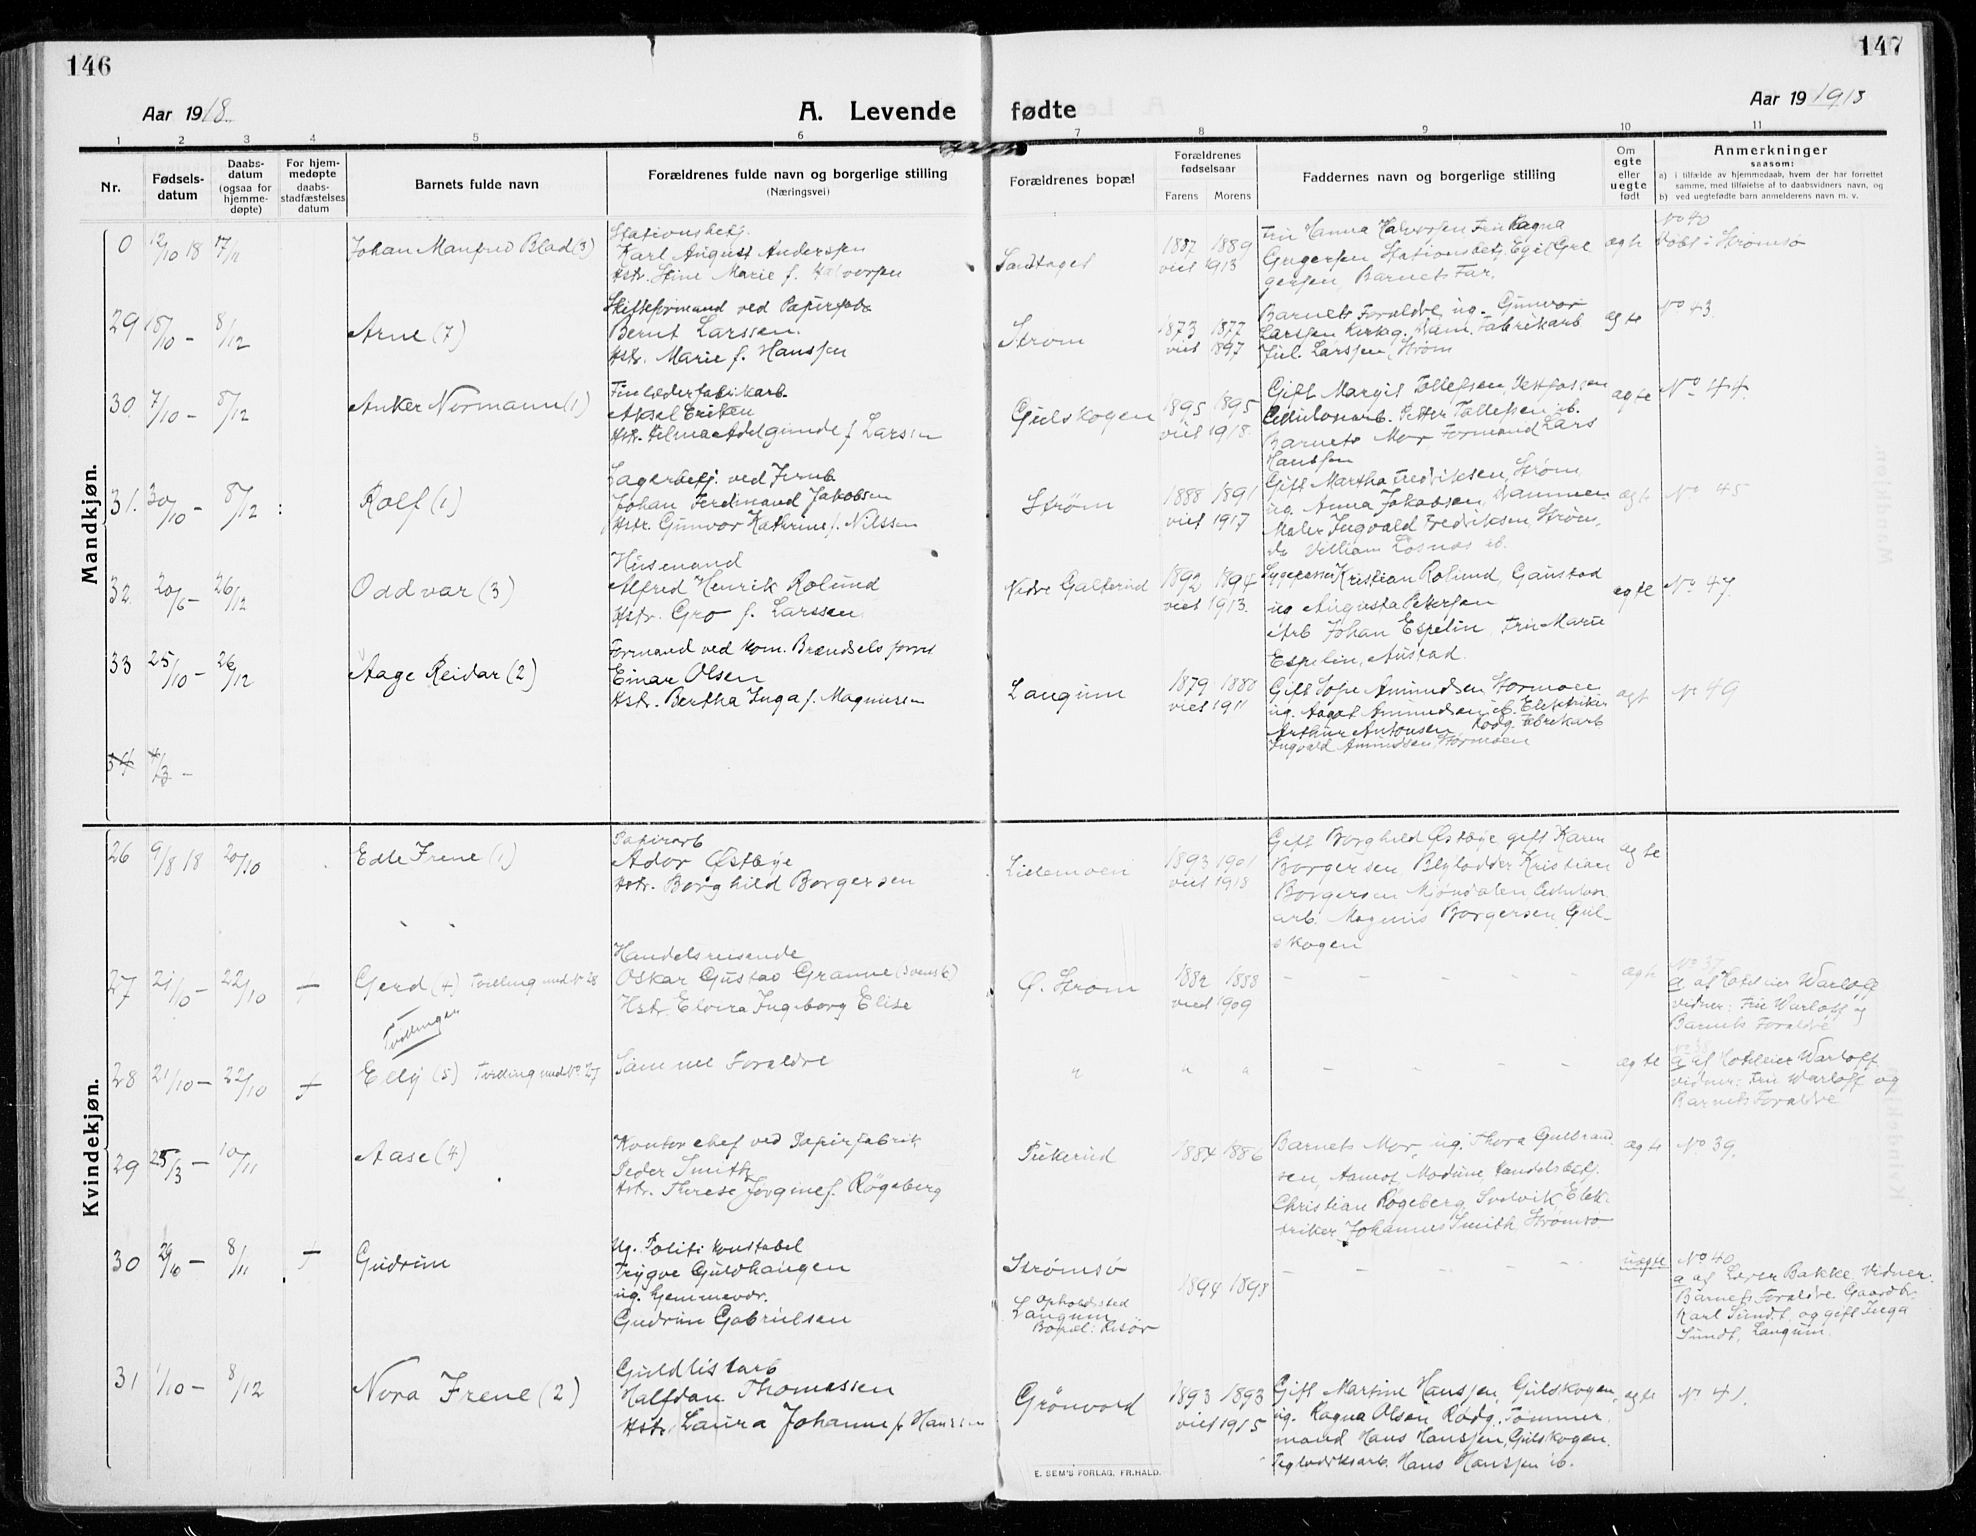 146
147
Aar 1918.
A. Levende fødte
Aar 19 1918
1 2 3 4 5 6 7 8 9 10 11
Nr.
Fødsels-
datum
Daabs-
datum
(ogsaa for
hjemme-
døpte)
For hjem-
medøpte
daabs-
stadfæstelses
datum
Barnets fulde navn
Forældrenes fulde navn og borgerlige stilling
(Næringsvei)
Forældrenes bopæl
Forældrenes
fødselsaar
Farens Morens
Faddernes navn og borgerlige stilling
Om
egte
eller
uegte
født
Anmerkninger
saasom:
a) i tilfælde av hjemmedaab, hvem der har forrettet
samme, med tilføielse af to daabsvidners navn, og
b) ved uegtefødte barn anmelderens navn m. v.
Mandkjøn.
0 12/10 18 17/11 Johan Manfred Blad (3)
Stationsbetj.
Karl August Andersen
Hstr. Stine Marie f. Halvorsen
1887 1889
viet 1913
Fru Hanna Halvorsen Fru Ragna
Gregersen Stationsbetj. Egil Gre
gersen, Barnets Far.
ægte
No 40
døbt i Strømsø
29 18/10 – 8/12 Arne (7)
Skifteformand ved Papirfab.
Bernt Larssen.
Hstr. Marie f. Hanssen
Strøm
1873 1877
viet 1897
Barnets Forældre, ug. Gunvor
Larssen Fabrikarb
Jul. Larssen, Strøm
ægte
No 43.
30 7/10 – 8/12 Anker Normann (1)
Finlæderfabrikarb.
Aksel Eriksen
Hstr. Helma Adelgunde f. Larsen
Gulskogen
1895 1895
viet 1918.
Gift Margit Tollefsen, Vestfossen
Cellulosearb. Petter Tollefsen ib.
Barnets Mor Formand Lars
Hanssen
ægte
No 44.
31. 30/10 – 8/12 Rolf (1)
Lagerbetj. ved Jernb
Johan Ferdinand Jakobsen
Hstr. Gunvor Kathrine f. Nilssen
Strøm
1888 1891
viet 1917
Gift Martha Fredriksen, Strøm
ug. Anna Jakobsen, Drammen
Maler Ingvald Fredriksen, Strøm,
do Villiam Losnæs ib.
ægt
No 45
32 20/6 – 26/12 Oddvar (3)
Husmand
Alfred Henrik Rolund
Hstr. Gro f. Larssen
Nedre Galterud
1892 1894
viet 1913.
Kristian Rolund, Gaustad
ug Augusta Petersen
Arb Johan Espelin, Fru Marie
Espelin, Austad.
ægte
No 47.
33 25/10 – 26/12 Aage Reidar (2)
Formand ved kom. Brændselsforret
Einar Olsen
Hstr. Bertha Inga f. Magnussen
Langum
1879 1888
viet 1911
Gift Sofie Amundsen Stormoen
ug. Aagot Amundsen ib. Elektriker
Arthur Antonsen Rødg. Fabrikarb
Ingvald Amundsen, Stormoen
ægt
No 49
34 –
Kvindekjøn.
26 9/8 18 20/10 Edle Irene (1)
Papirarb
Ador Østbye
Hstr. Borghild Borgersen
Liermoen
1893 1901
viet 1918
Gift Borghild Østbye gift Karen
Borgersen, Kristian
Borgersen Mjøndalen, Cellulose
arb. Magnus Borgersen, Gul-
skogen
ægte
27 21/10 – 22/10 + Gerd (4) Tvilling med No 28
Handelsreisende
Oskar Gustav Granne (svensk)
Hstr. Elvira Ingeborg Elise
Ø. Strøm
1882 1888
viet 1909
– – – –
ægte
No 37
a af Hoteleier Warloff
vidner: Fru Warloff og
Barnets Forældre
Tvillinger
28 21/10 – 22/10 + Elly (5) Tvilling med No 27
Samme Forældre
" " "
– – – –
ægte
No 38
a af Hoteleier Warloff
vidner: Fru Warloff og
Barnets Forældre
29 25/3 – 10/11 Aase (4)
Kontorchef ved Papirfabrik
Peder Smith
Hstr. Therese Jørgine f. Røgeberg
Pukerud
1884 1886
Barnets Mor, ug. Thora Gulbrand
sen, Aamot, Modum, Handelsbetj.
Christian Røgeberg, Svelvik Elek-
triker Johannes Smith, Strømsø
ægte
No 39.
30 29/10 – 8/11 + Gudrun
Ug. Politikonstabel
Trygve Guldhaugen
ug. Hjemmevær.
Gudrun Gabrielsen
Strømsø
Opholdssted
Langum
Bopæl: Risør
1894 1898
– – – –
uægte
No 40
a af Lærer Bakke Vidner:
Barnets Forældre. Gaardbr.
Karl Sundt, og gift Inga
Sundt, Langum.
31 1/10 – 8/12 Nora Irene (2)
Guldlistarb
Halfdan Thomassen
Hstr. Laura Johanne f. Hanssen
Grønvold
1893 1893
viet 1915
Gift Martine Hanssen, Gulskogen,
ug. Ragna Olsen Rødg. Tømmer
mand Hans Hanssen, Gulskogen.
Teglverksarb. Hans Hanssen ib.
ægte
No 41.
E. SEM'S FORLAG, FR.HALD.